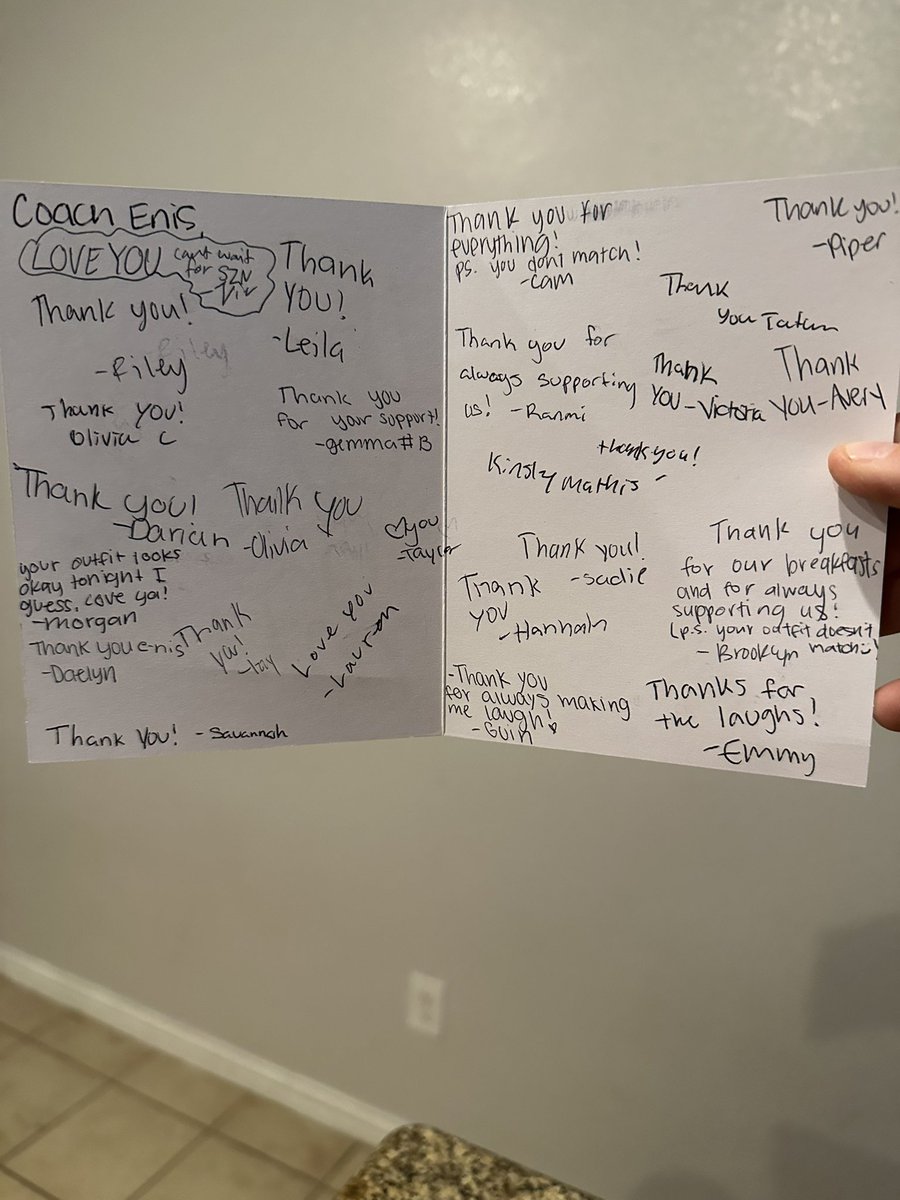 Coach Enis,
LOVE YOU can't wait
for SZN
- Viv
Thank
YOU!
-Leila
Thank you!
-Riley
Thank YOU!
Olivia C
Thank you
for your support!
-gemma #13
Thank you!
-Darian
Thank you
-Olivia
♡you
-Taylor
your outfit looks
okay tonight I
guess. Love ya!
-morgan
Thank you e-nis
-Daelyn
Thank
you!
-Jay
Love you
-Lauren
Thank You! - Savannah
Thank you for
everything!
ps. you dont match!
-Cam
Thank you!
-Piper
Thank
you Tatum
Thank you for
always supporting
us! -Ranmi
Thank
YOU-Victoria
Thank
YOU-Avery
thank you!
Kinsly Mathis -
Thank you!
-Sadie
Thank
you
-Hannah
Thank you
for our breakfasts
and for always
supporting us!
(p.s. your outfit doesn't
- Brooklyn match:)!
-Thank you
for always making
me laugh!
-Guin
Thanks for
the laughs!
-Emmy